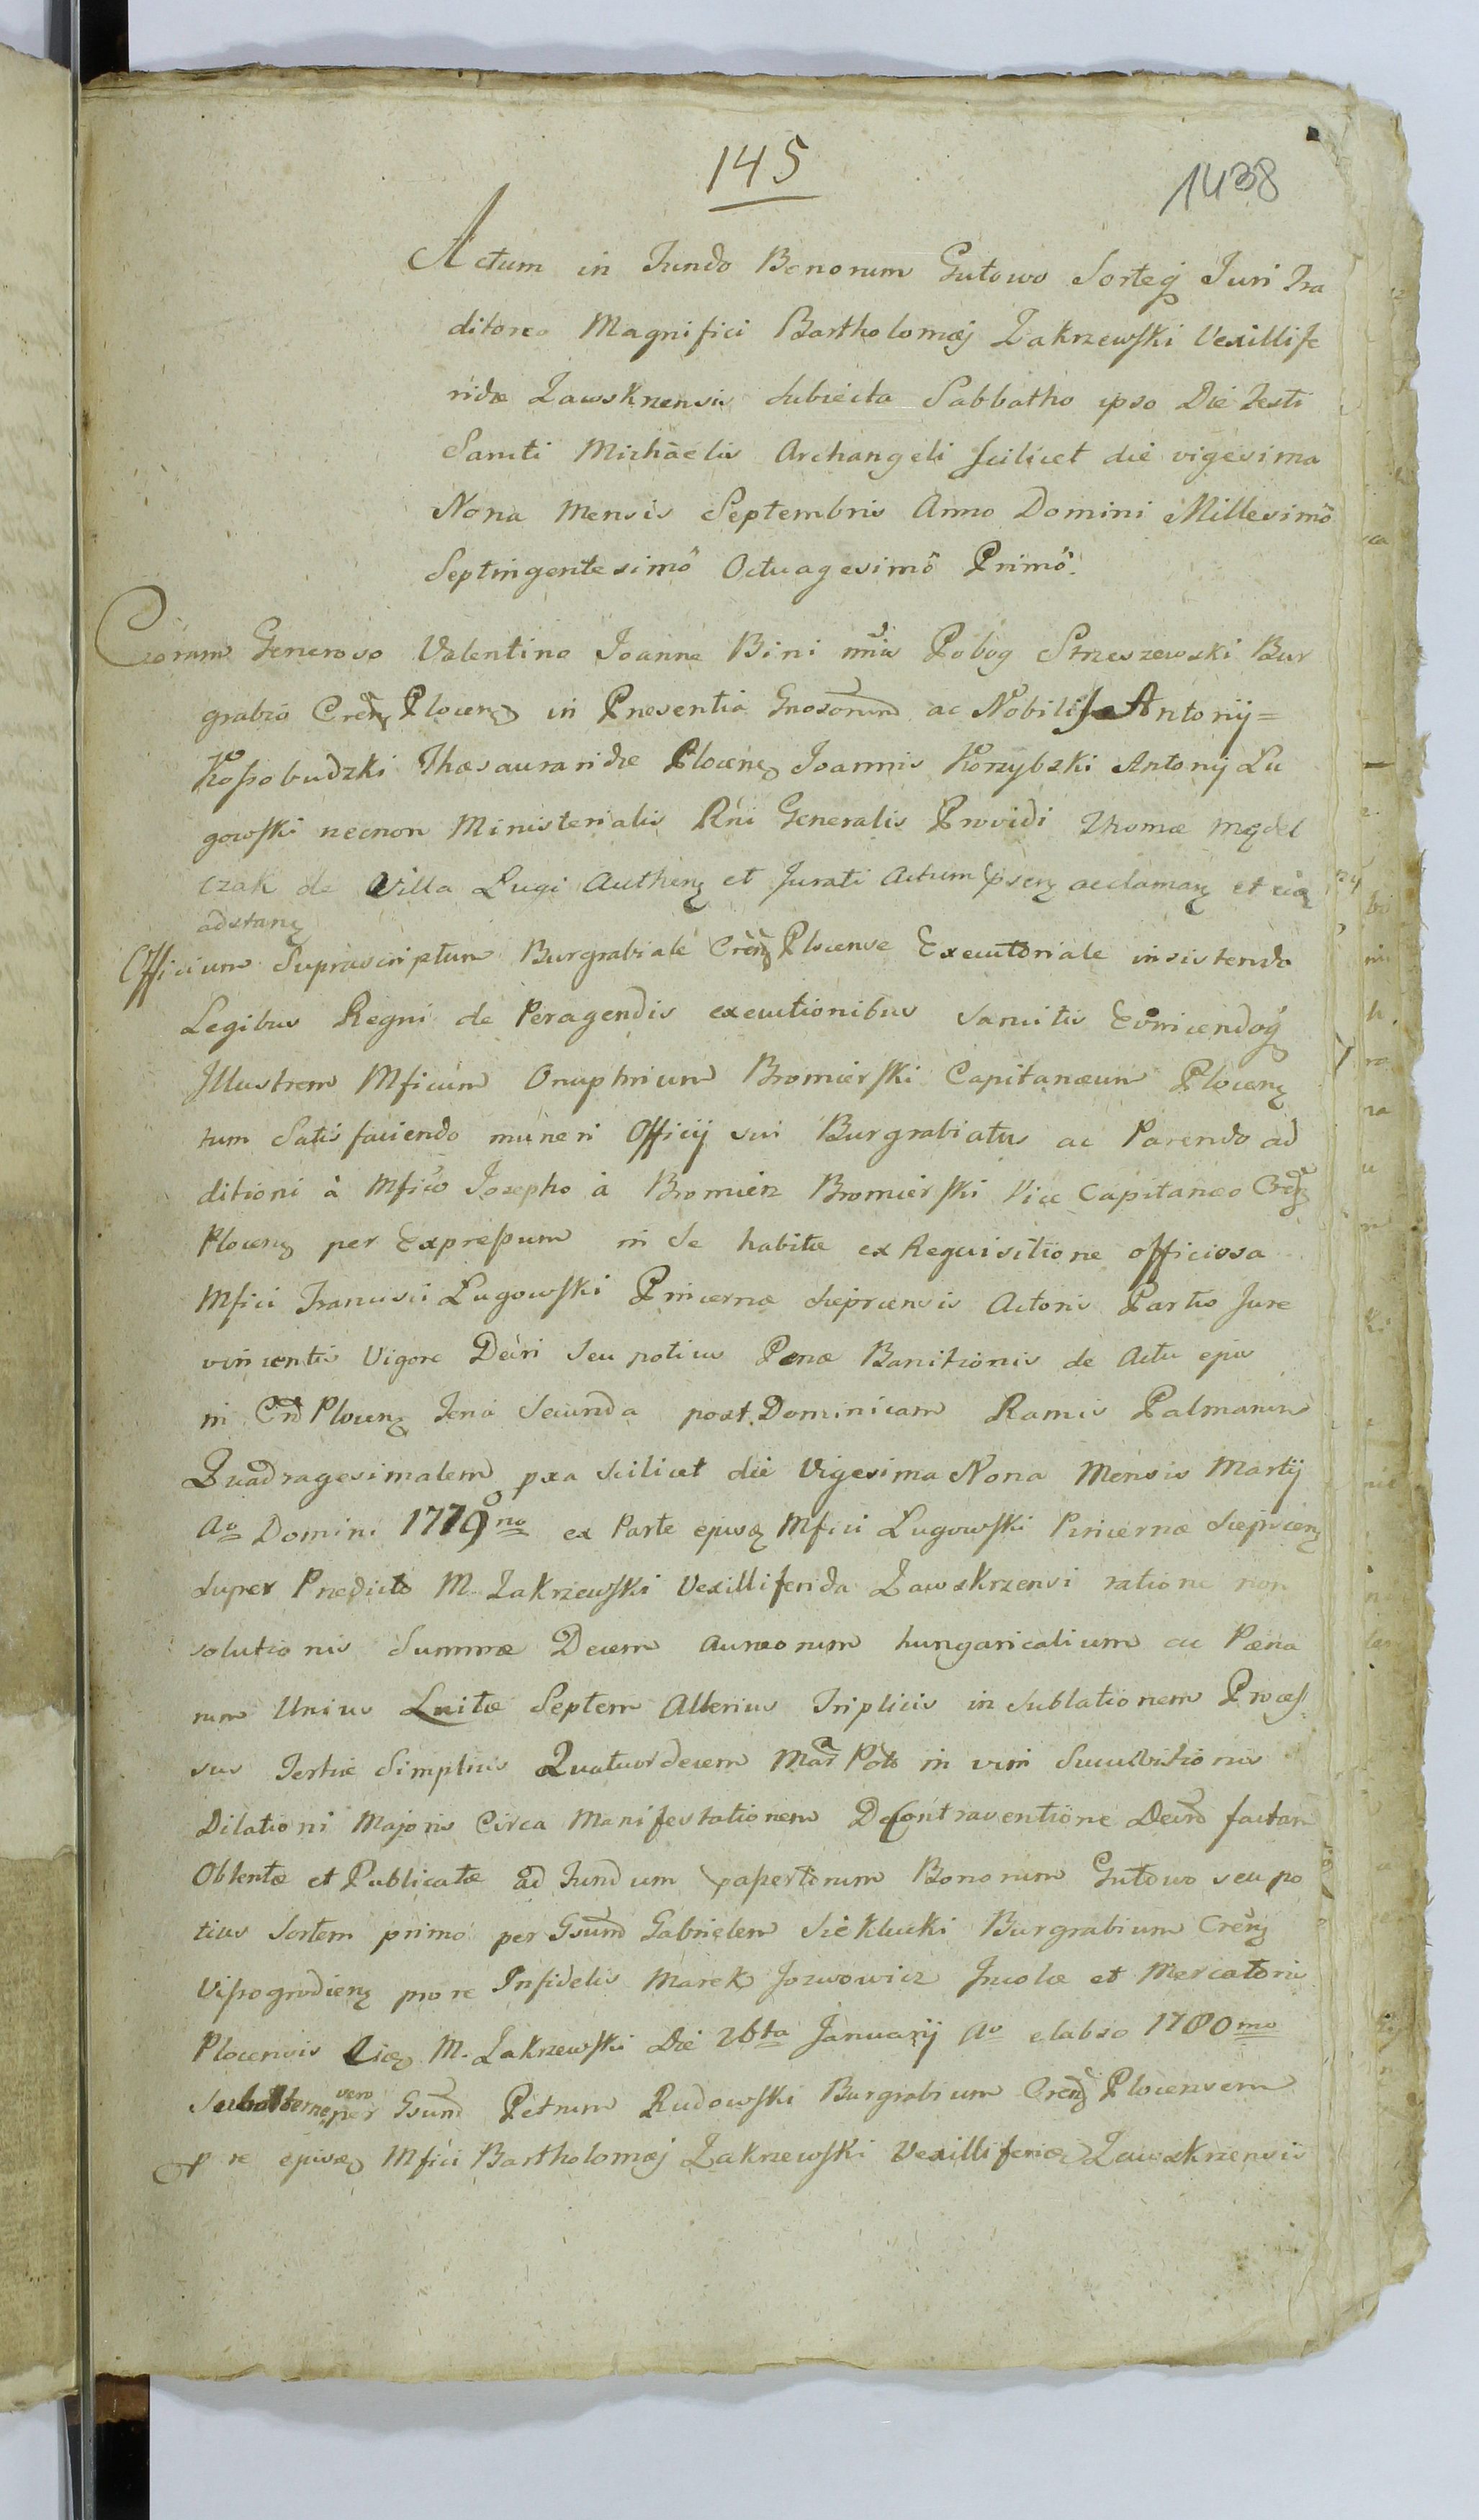 145
1438
Actum in Fundo Bonorum Gutowo Sorteq Juri Tra
ditoreo Magnifici Bartholomæj Zakrzewski Vexillife
ridæ Zawskrzensis Subiecta Sabbatho ipso Die Festi
Sancti Michaëlis Archangeli scilicet die vigesima
Nona Mensis Septembris Anno Domini Millesimô
Septingentesimô Octuagesimô Primô.
Coram Generoso Valentino Joanne Bini nnis Pobog Strzeszewski Bur
grabio Cren Plocen in Presentia Gnosorum ac Nobiliū Antonij =
Kossobudzki Thæsauraridæ Plocen Joannis Korzybski Antonij Lu
gowski necnon Ministerialis Rni Generalis Providi Thomæ Mędel
czak de Villa Lugi Authen et Jurati Actum psen acclaman et ei
adstan
Officium Suprascriptum Burgrabiale Cren Plocense Executoriale insistendo
Legibus Regni de Peragendis executionibus sancitis Evincendoq
Illustrem Mficum Onuphrium Bromierski Capitanæum Plocen
tum Satisfaciendo muneri Officij sui Burgrabiatus ac Parendo ad
ditioni à Mfico Josepho à Bromierz Bromierski Vice Capitaneo Cren
Plocen per Expressum in se habitæ ex Requisitione officiosa
Mfici Francisci Lugowski Pincernæ Sieprcensis Actoris Partis Jure
vincentis Vigore Decri seu potius Penæ Banitionis de Actu ejus
in Crd Plocen Feria Secunda post Dominicam Ramis Palmarum
Quadragesimalem pxa scilicet die Vigesima Nona Mensis Martij
Ao Domini 1779no ex Parte ejusq Mfici Lugowski Pincernæ Sieprcen
super Prædicto M. Zakrzewski Vexilliferida Zawskrzensi ratione non
solutionis Summæ Decem Aureorum hungaricalium ac Pæna
rum Unius Luitæ Septem Alterius Triplicis in Sublationem Proces
sus Tertiæ Simplicis Quatuordecem Mar Pols in vim
Dilationi Majoris Circa Manifestationem De Contraventione Decro factam
Obtentæ et Publicatæ ad Fundum Bonorum Gutowo seu po
tius Sortem primo per Gsum Gabrielem Sieklucki Burgrabium Cren
Vissogrodien pro re Infidelis Marek Jozwowicz Incolæ et Mercatoris
Plocensis M. Zakrzewski Die 26ta Januarij Ao elabso 1780mo
Subalterne vero per Gsum Petrum Rudowski Burgrabium Cren Plocensem
p re ejusq Mfici Bartholomæj Zakrzewski Vexilliferidæ Zawskrzensis